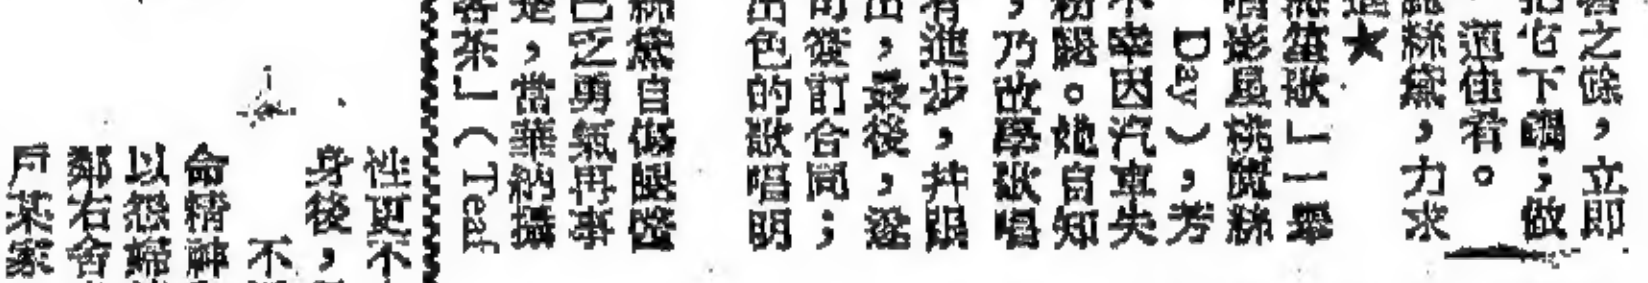 之餘，立即
下；做
道佳者。
絲黛，力求
★
歌」一舉
影星桃麗絲
Day），芳
不幸因汽車失
腿。她自知
，乃改學歌唱
有進步，幷跟
出，最後，遂
司簽訂合同；
出色的歌唱明
絲黛自傷腿
已乏勇氣再事
是，當華納攝
客茶」（Teaf
性更不
身後，
不
命精神
以怨婦
鄰右舍
戶某家